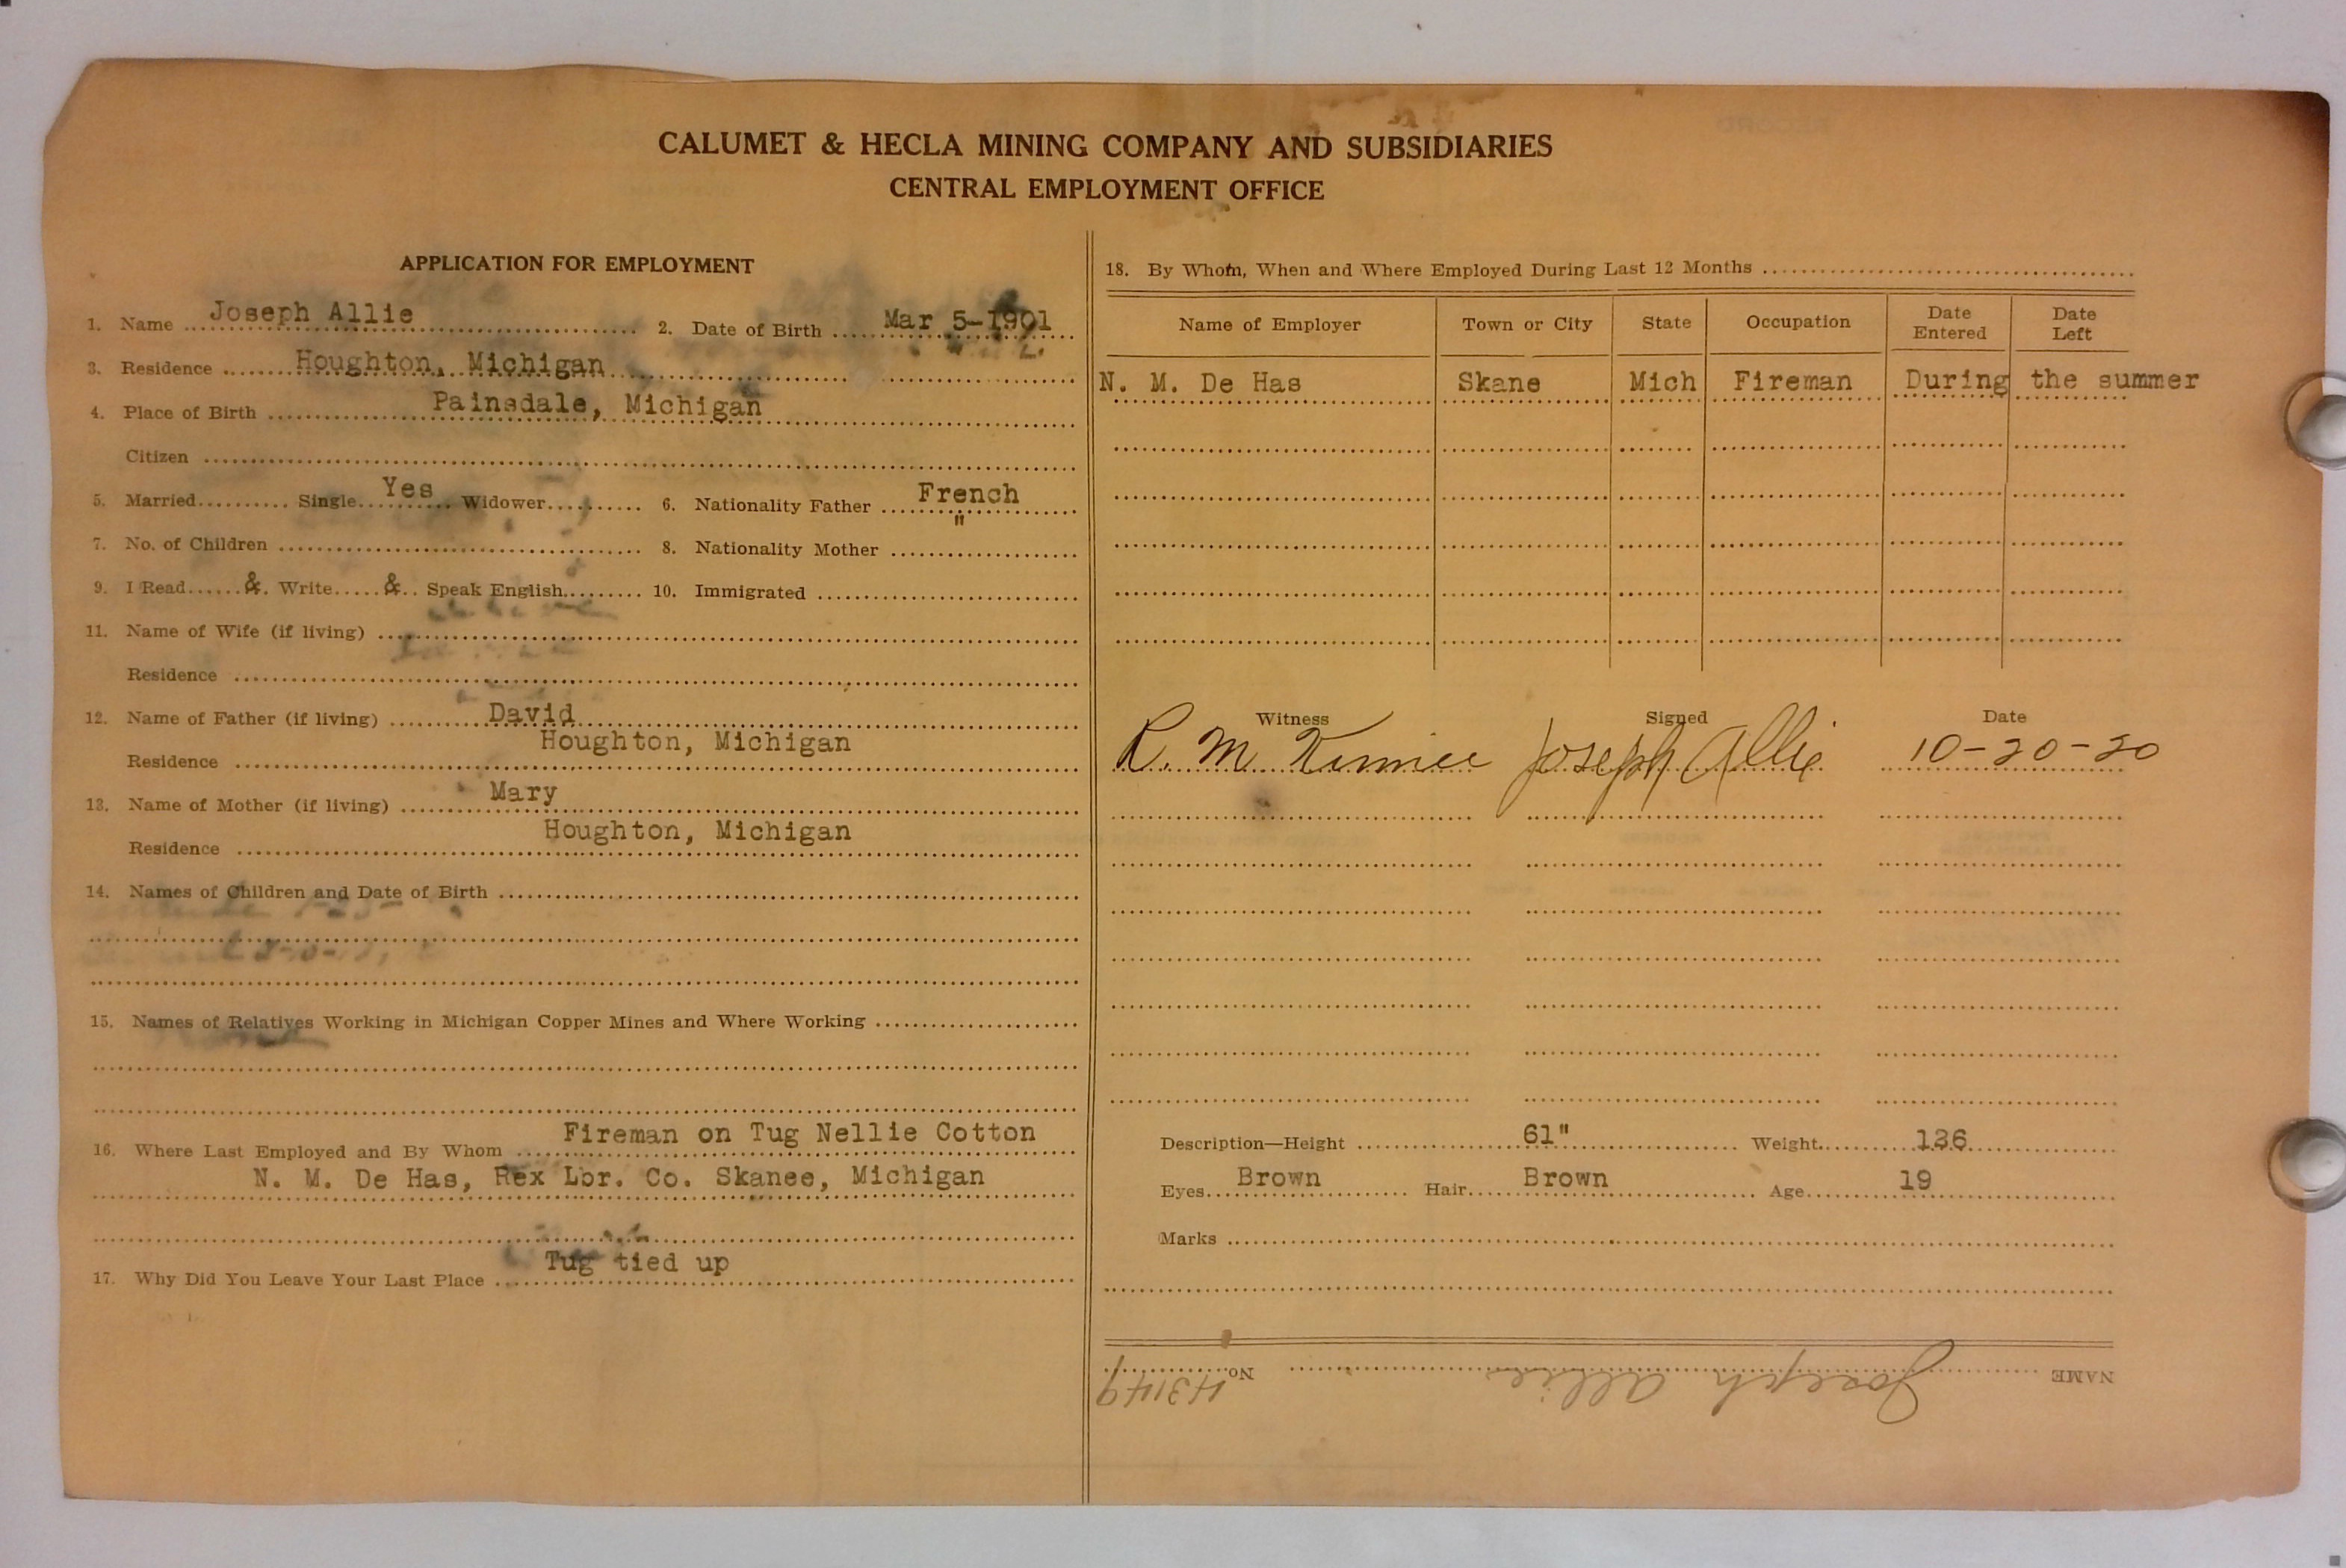 CALUMET & HECLA MINING COMPANY AND SUBSIDIARIES
CENTRAL EMPLOYMENT OFFICE
APPLICATION FOR EMPLOYMENT
1. Name Joseph Allie 2. Date of Birth Mar 5-1901
3. Residence Houghton, Michigan
4. Place of Birth Painsdale, Michigan
Citizen
5. Married Single Yes Widower 6. Nationality Father French
7. No. of Children 8. Nationality Mother "
9. I Read & Write & Speak English 10. Immigrated
11. Name of Wife (if living)
Residence
12. Name of Father (if living) David
Residence Houghton, Michigan
13. Name of Mother (if living) Mary
Residence Houghton, Michigan
14. Names of Children and Date of Birth
15. Names of Relatives Working in Michigan Copper Mines and Where Working
16. Where Last Employed and By Whom Fireman on Tug Nellie Cotton
N. M. De Has, Rex Lbr. Co. Skanee, Michigan
17. Why Did You Leave Your Last Place Tug tied up
18. By Whom, When and Where Employed During Last 12 Months
Name of Employer Town or City State Occupation Date Entered Date Left
N. M. De Has Skane Mich Fireman During the summer
Witness Signed Date
R. M. Joseph Allie 10-20-20
Description—Height 61" Weight 136
Eyes Brown Hair Brown Age 19
Marks
NAME Joseph Allie No. 43149